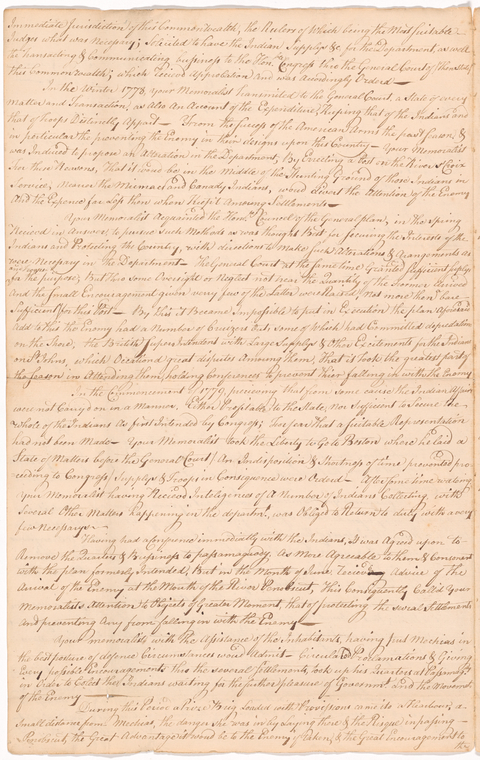 Immediate Jurisdiction of this Commonwealth, the Rulers of Which being the Most suitable
Judges what was Necessary; Decided to have the Indian Supplys &c. for the Department, as well
as Transacting & Communicating business to the Honble. Congress thro the General Court of
this Commonwealth, which Received approbation and was Accordingly Ordered —
In the Winter 1778 your Memorialist Transmitted to the General Court, a State of every
matter and Transaction, as Also An Account of the Expenditure, Shipping that of the Indians and
that of troops Distinctly Appart — From the success of the American Arms the past Season, &
in particular the preventing the Enemy in their designs upon this Country — Your Memorialist
was Induced to propose an Alteration in the Department, By Erecting a Post on the River St Croix
For these Reasons, That it would be in the Middle of the Hunting Ground of those Indians in
Service, nearer the Micmac and Canady Indians, would divert the Attention of the Enemy
And the Expence far Less than when Kept Among Settlements —
Your Memorialist Acquainted the Honble. Council of the General plan, in the spring
Received in Answer to pursue such Methods as was thought Best for securing the Interests of the
Indians and Protecting the Country, with directions to make such Alterations & Arangements as
were Necessary in the Department — The General Court at the same time Granted sufficient supplys
for the purpose, But thro some Oversight or Neglect not near the Quantity of the Former arrived
and the small Encouragement given very few of the Latter were raised, Not more than bare
Sufficient for this Post — By this it Became Impossible to put in Execution the plan
Add to this the Enemy had a Number of Cruizers Out some of Which had Committed depredations
on the Shore, the British Superintendent with large Supplys & Other Excitements for the Indians
on St Johns, which Occationd great disputes Among them, that it took the greatest part of
the season in Attending them, holding Conferences to prevent their falling in with the Enemy
In the Commencement of 1779, perceiving that from some cause the Indian Affairs
were not Carry'd on in a Manner, Either Profitable to the State, nor Sufficient to Secure the
whole of the Indians As first Intended by Congress; thro fear that a suitable Representation
had not been Made — Your Memorialist took the Liberty to Go to Boston where he laid a
State of Matters before the General Court (An Indisposition & Shortness of time prevented pro-
ceeding to Congress) Supplys & Troops in Consequence were Ordered — After some time waiting
Your Memorialist having Received Intelegences of A Number of Indians Collecting, with
Several Other Matters Happening in the department, was Obliged to Return to duty with a very
few Necessarys —
Having had a conference immediatly with the Indians, It was Agreed upon to
Remove the Quarters & Business to passamaquody, As More Agreeable to them & Consonant
with the plan formerly Intended, But in the Month of June Received Advice of the
Arrival of the Enemy at the Mouth of the River Penobscut, This Consequently Called Your
Memorialists Attention to Objects of Greater Moment, that of protecting the several Settlements
and preventing Any from falling in with the Enemy —
Your Memorialist with the Assistance of the Inhabitants, having put Mechias in
the best posture of defence Circumstances would Admit — Circulated Proclamations & Giving
Every possible Encouragement thro the several Settlements, took up his Quarters at
in Order to Collect the Indians waiting for the further pleasure of Government and the Movement
of the Enemy —
During this Period a Prize Brig Loaded with Provisions came into a Harbour a
Small distance from Mechias, the danger she was in by laying there & the Risque in passing
Penobscut, the Great Advantage it would be to the Enemy if taken, & the Great Encouragement to
the